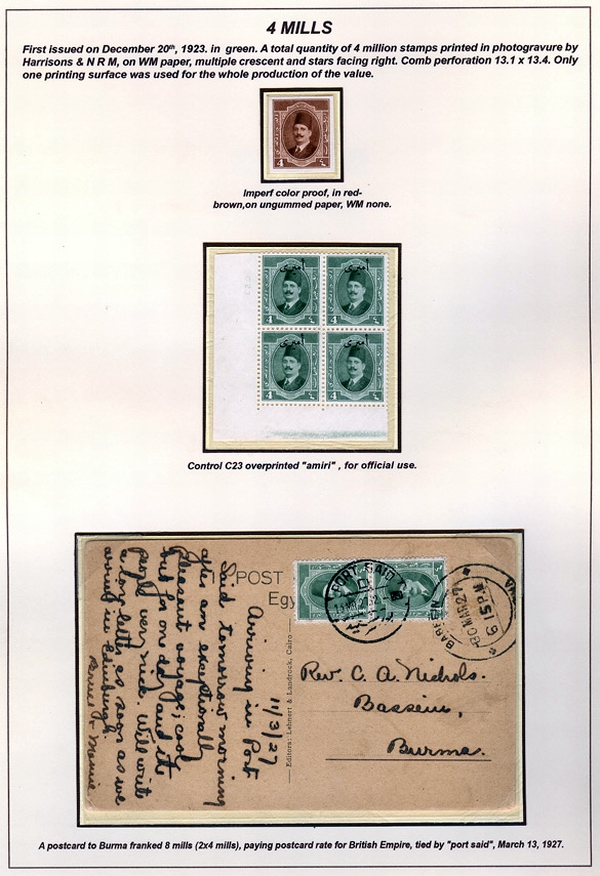 4 MILLS
First issued on December 20th, 1923. in green. A total quantity of 4 million stamps printed in photogravure by
Harrisons & N R M, on WM paper, multiple crescent and stars facing right. Comb perforation 13.1 x 13.4. Only
one printing surface was used for the whole production of the value.
4
Imperf color proof, in red-
brown,on ungummed paper, WM none.
أميرى
أميرى
4
4
أميرى
أميرى
4
4
Control C23 overprinted "amiri" , for official use.
POST
Egy
PORT-SAID
BASSEIN
30 MAR 27
6 15 P.M.
11/3/27
Arriving in Port
Said tomorrow morning
after an exceptionally
pleasant voyage; cool
but for one day and the
people very nice. Will write
a long letter as soon as we
arrive in Edinburgh.
Editors: Lehnert & Landrock, Cairo
Rev. C. A. Nichols.
Bassein,
Burma.
A postcard to Burma franked 8 mills (2x4 mills), paying postcard rate for British Empire, tied by "port said", March 13, 1927.